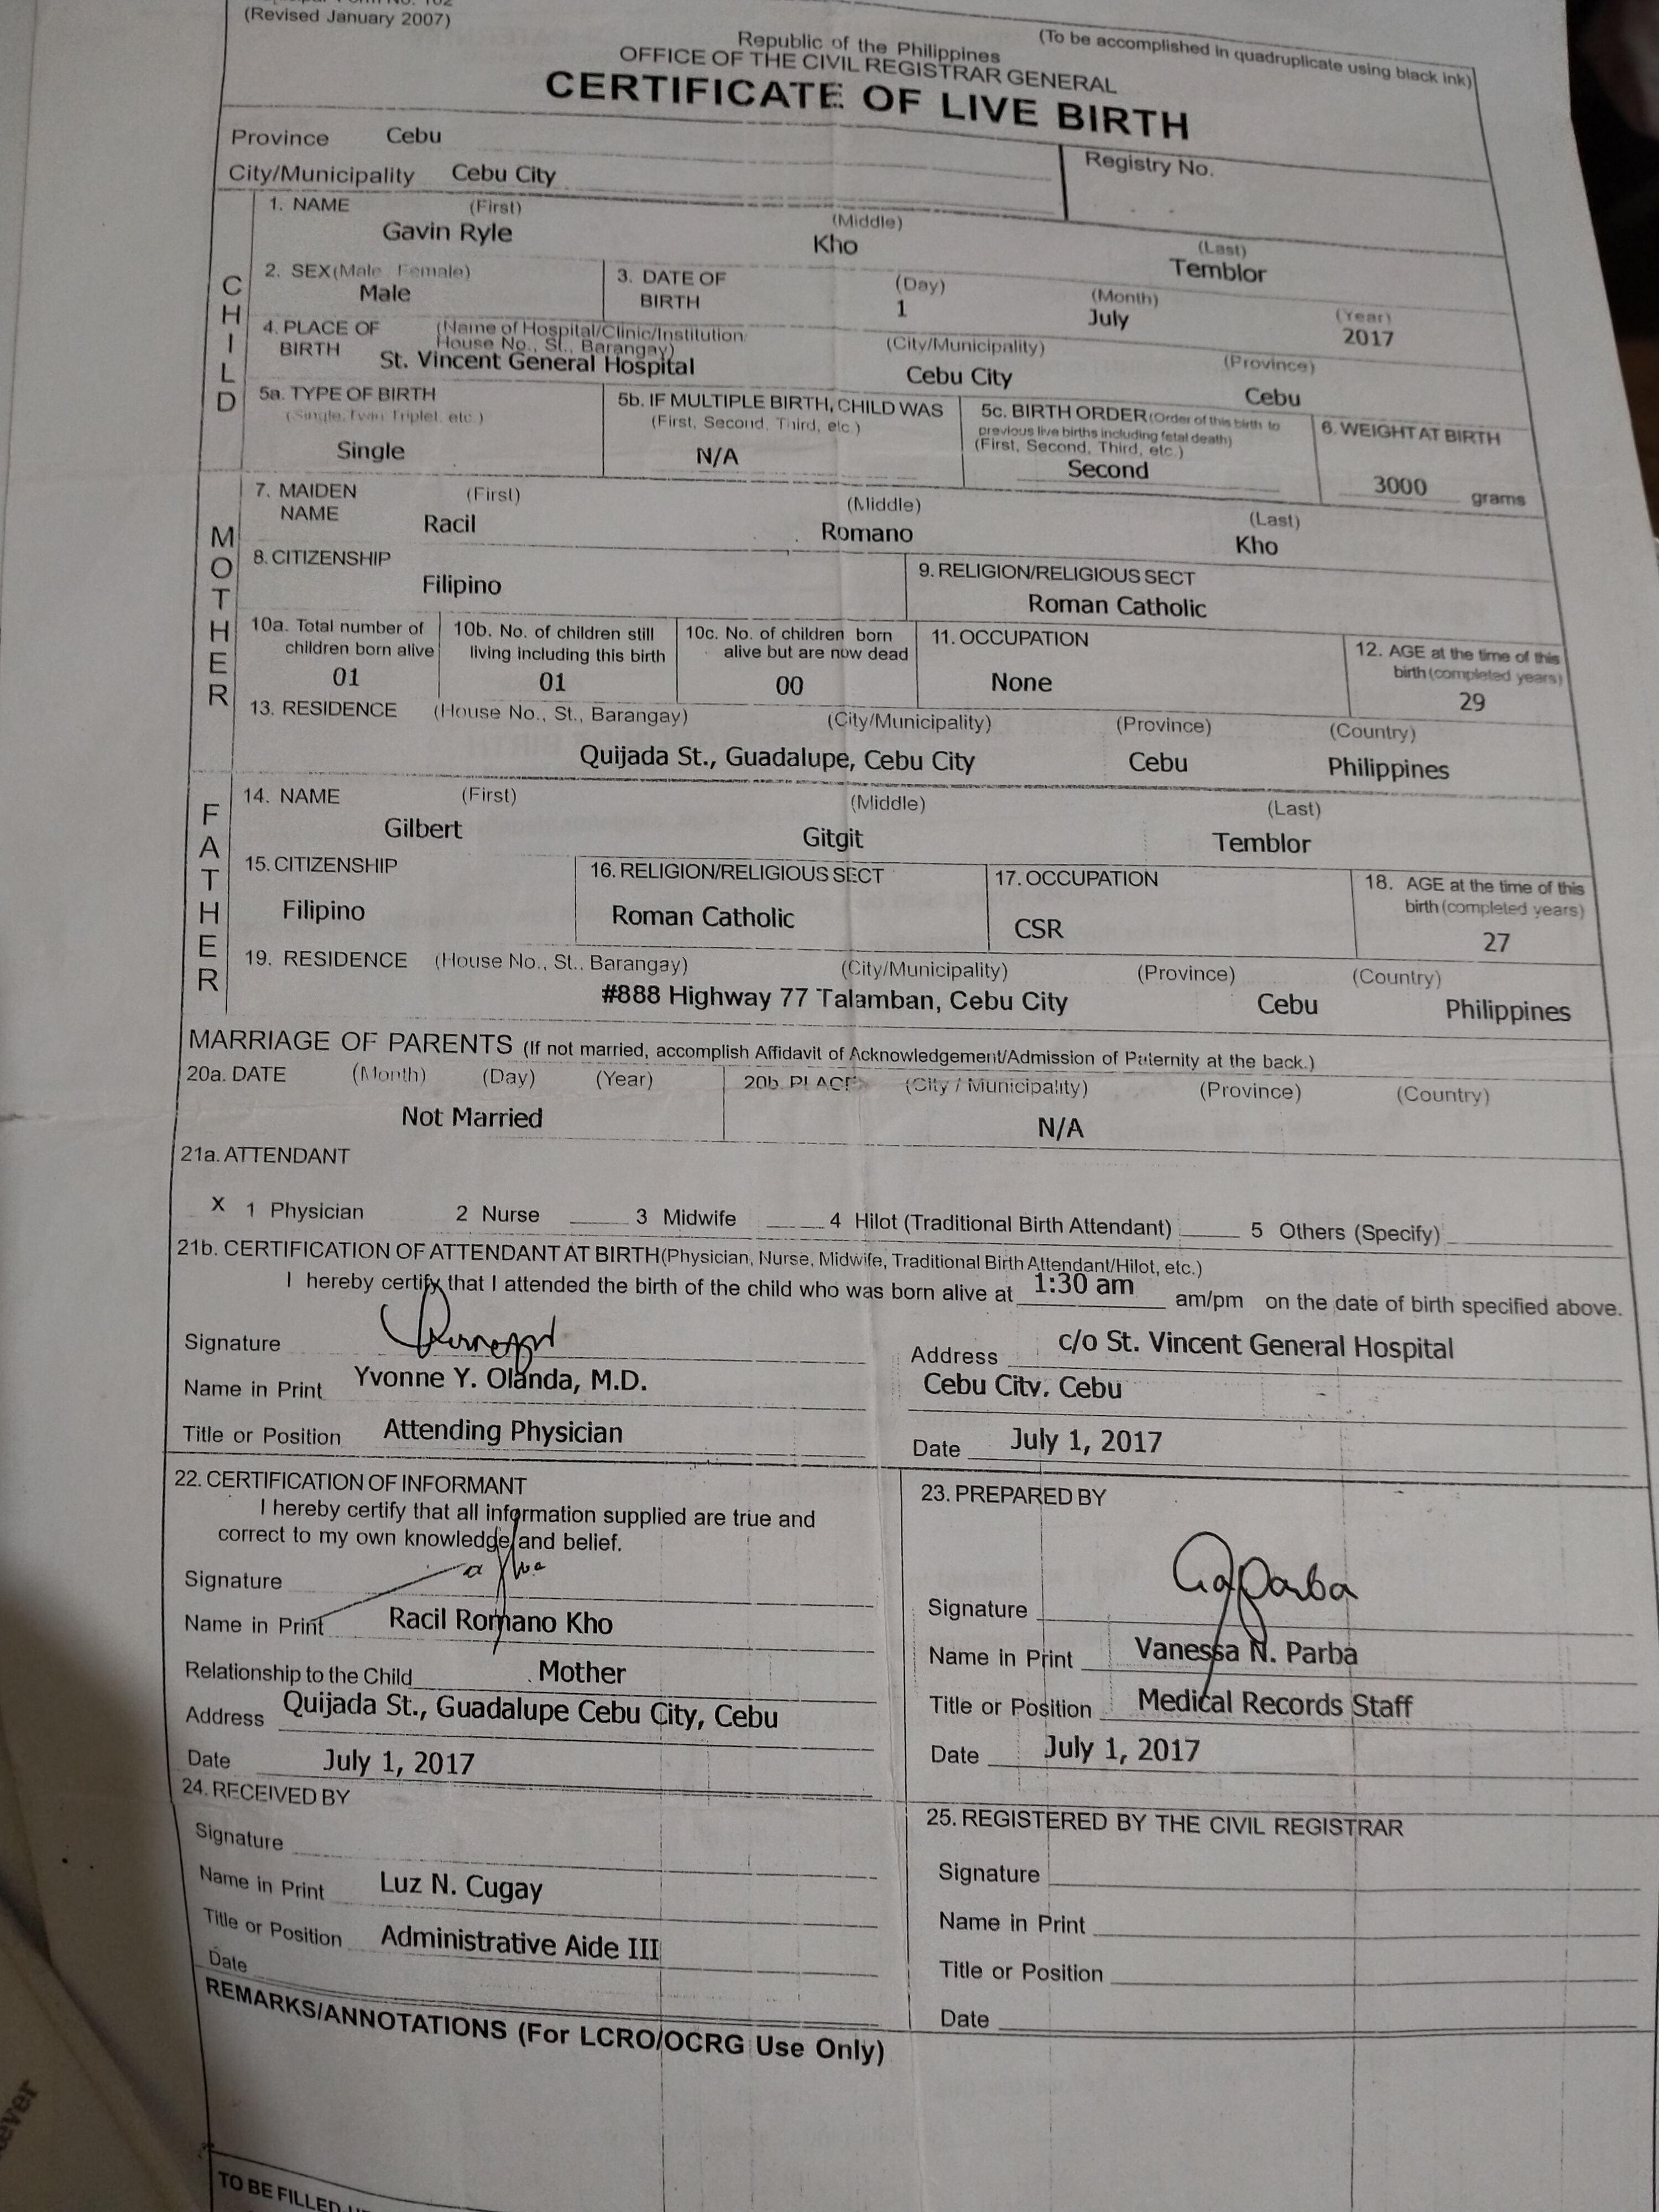 (Revised January 2007)
(To be accomplished in quadruplicate using black ink)
Republic of the Philippines
OFFICE OF THE CIVIL REGISTRAR GENERAL
CERTIFICATE OF LIVE BIRTH
Province Cebu
Registry No.
City/Municipality Cebu City
CHILD
1. NAME (First) (Middle) (Last)
Gavin Ryle Kho Temblor
2. SEX (Male, Female) 3. DATE OF BIRTH (Day) (Month) (Year)
Male 1 July 2017
4. PLACE OF BIRTH (Name of Hospital/Clinic/Institution/ House No., St., Barangay) (City/Municipality) (Province)
St. Vincent General Hospital Cebu City Cebu
5a. TYPE OF BIRTH (Single, Twin, Triplet, etc.)
Single
5b. IF MULTIPLE BIRTH, CHILD WAS (First, Second, Third, etc.)
N/A
5c. BIRTH ORDER (Order of this birth to previous live births including fetal death) (First, Second, Third, etc.)
Second
6. WEIGHT AT BIRTH
3000 grams
MOTHER
7. MAIDEN NAME (First) (Middle) (Last)
Racil Romano Kho
8. CITIZENSHIP
Filipino
9. RELIGION/RELIGIOUS SECT
Roman Catholic
10a. Total number of children born alive
01
10b. No. of children still living including this birth
01
10c. No. of children born alive but are now dead
00
11. OCCUPATION
None
12. AGE at the time of this birth (completed years)
29
13. RESIDENCE (House No., St., Barangay) (City/Municipality) (Province) (Country)
Quijada St., Guadalupe, Cebu City Cebu Philippines
FATHER
14. NAME (First) (Middle) (Last)
Gilbert Gitgit Temblor
15. CITIZENSHIP
Filipino
16. RELIGION/RELIGIOUS SECT
Roman Catholic
17. OCCUPATION
CSR
18. AGE at the time of this birth (completed years)
27
19. RESIDENCE (House No., St., Barangay) (City/Municipality) (Province) (Country)
#888 Highway 77 Talamban, Cebu City Cebu Philippines
MARRIAGE OF PARENTS (If not married, accomplish Affidavit of Acknowledgement/Admission of Paternity at the back.)
20a. DATE (Month) (Day) (Year) 20b. PLACE (City / Municipality) (Province) (Country)
Not Married N/A
21a. ATTENDANT
X 1 Physician 2 Nurse 3 Midwife 4 Hilot (Traditional Birth Attendant) 5 Others (Specify)
21b. CERTIFICATION OF ATTENDANT AT BIRTH (Physician, Nurse, Midwife, Traditional Birth Attendant/Hilot, etc.)
I hereby certify that I attended the birth of the child who was born alive at 1:30 am am/pm on the date of birth specified above.
Signature
Name in Print Yvonne Y. Olanda, M.D.
Title or Position Attending Physician
Address c/o St. Vincent General Hospital
Cebu City, Cebu
Date July 1, 2017
22. CERTIFICATION OF INFORMANT
I hereby certify that all information supplied are true and
correct to my own knowledge and belief.
Signature
Name in Print Racil Romano Kho
Relationship to the Child Mother
Address Quijada St., Guadalupe Cebu City, Cebu
Date July 1, 2017
23. PREPARED BY
Signature
Name in Print Vanessa N. Parba
Title or Position Medical Records Staff
Date July 1, 2017
24. RECEIVED BY
Signature
Name in Print Luz N. Cugay
Title or Position Administrative Aide III
Date
25. REGISTERED BY THE CIVIL REGISTRAR
Signature
Name in Print
Title or Position
Date
REMARKS/ANNOTATIONS (For LCRO/OCRG Use Only)
TO BE FILLED